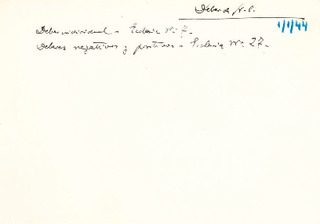 Deber de N.C.
1/1/44
Deber individual - Ficha Nº 7.
Deberes negativos y positivos - Ficha Nº 27.